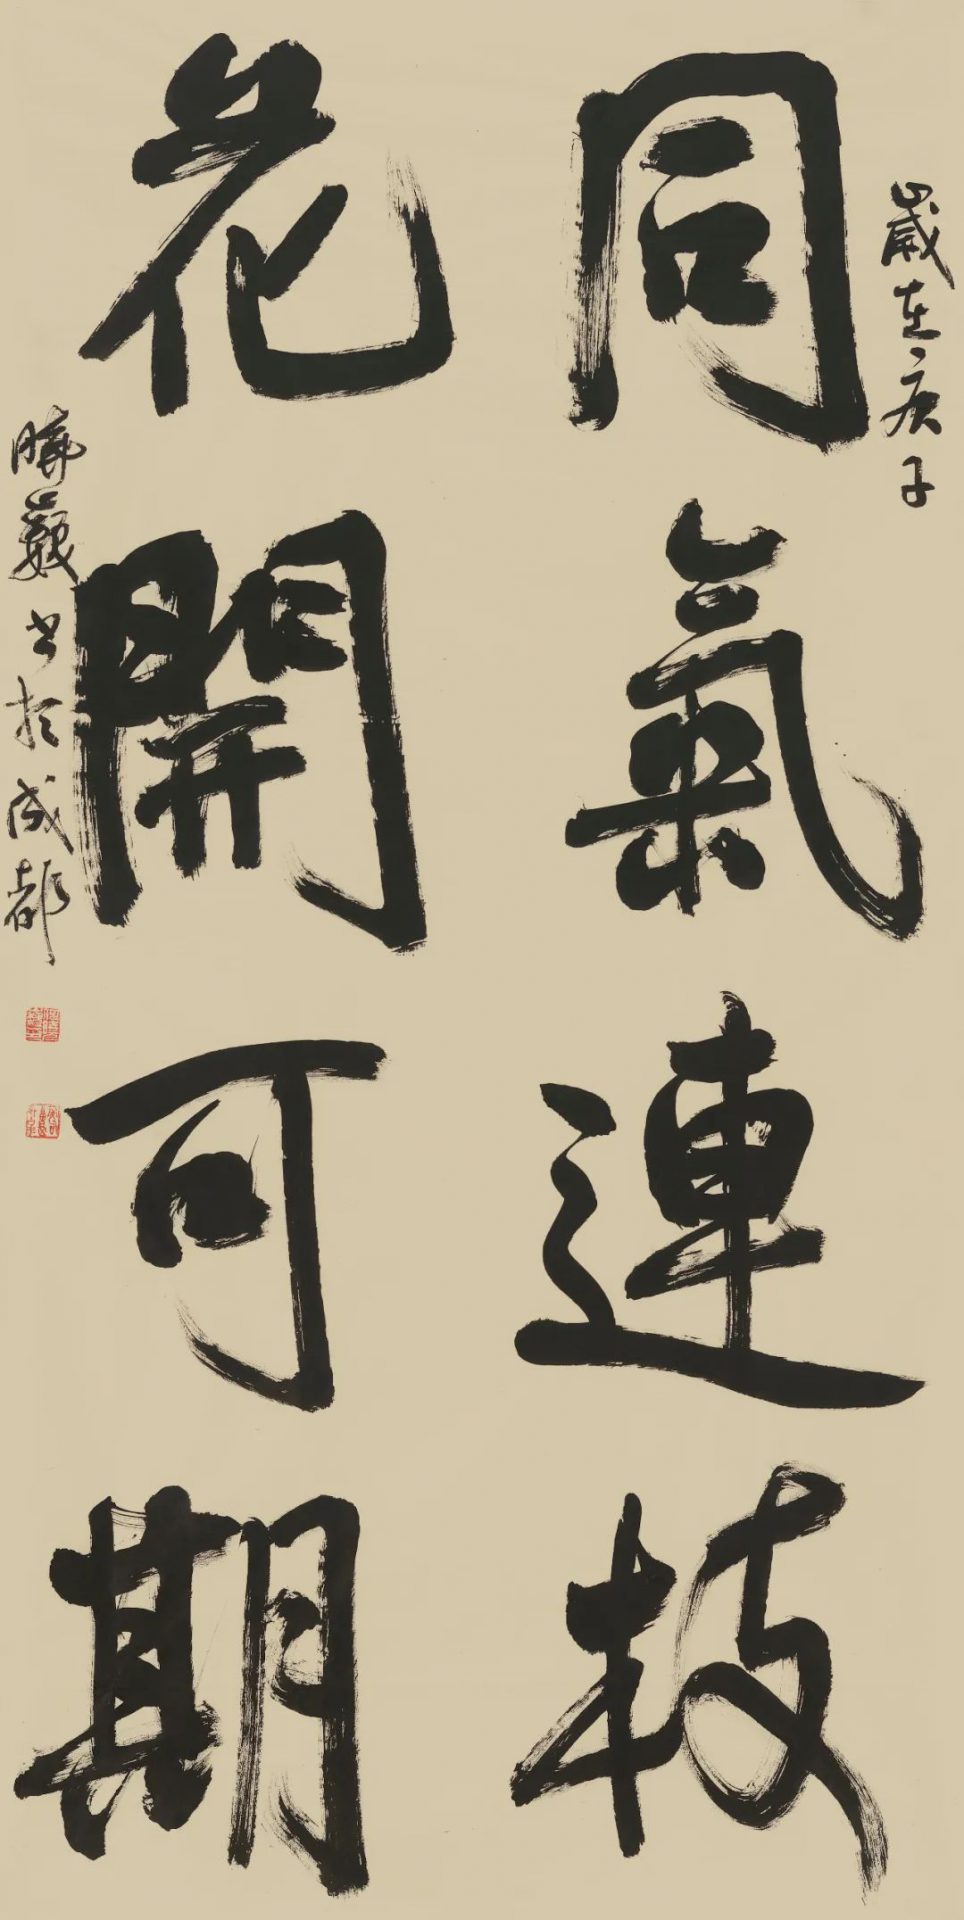 歲在庚子
同氣連枝
花開可期
曉巍書於成都